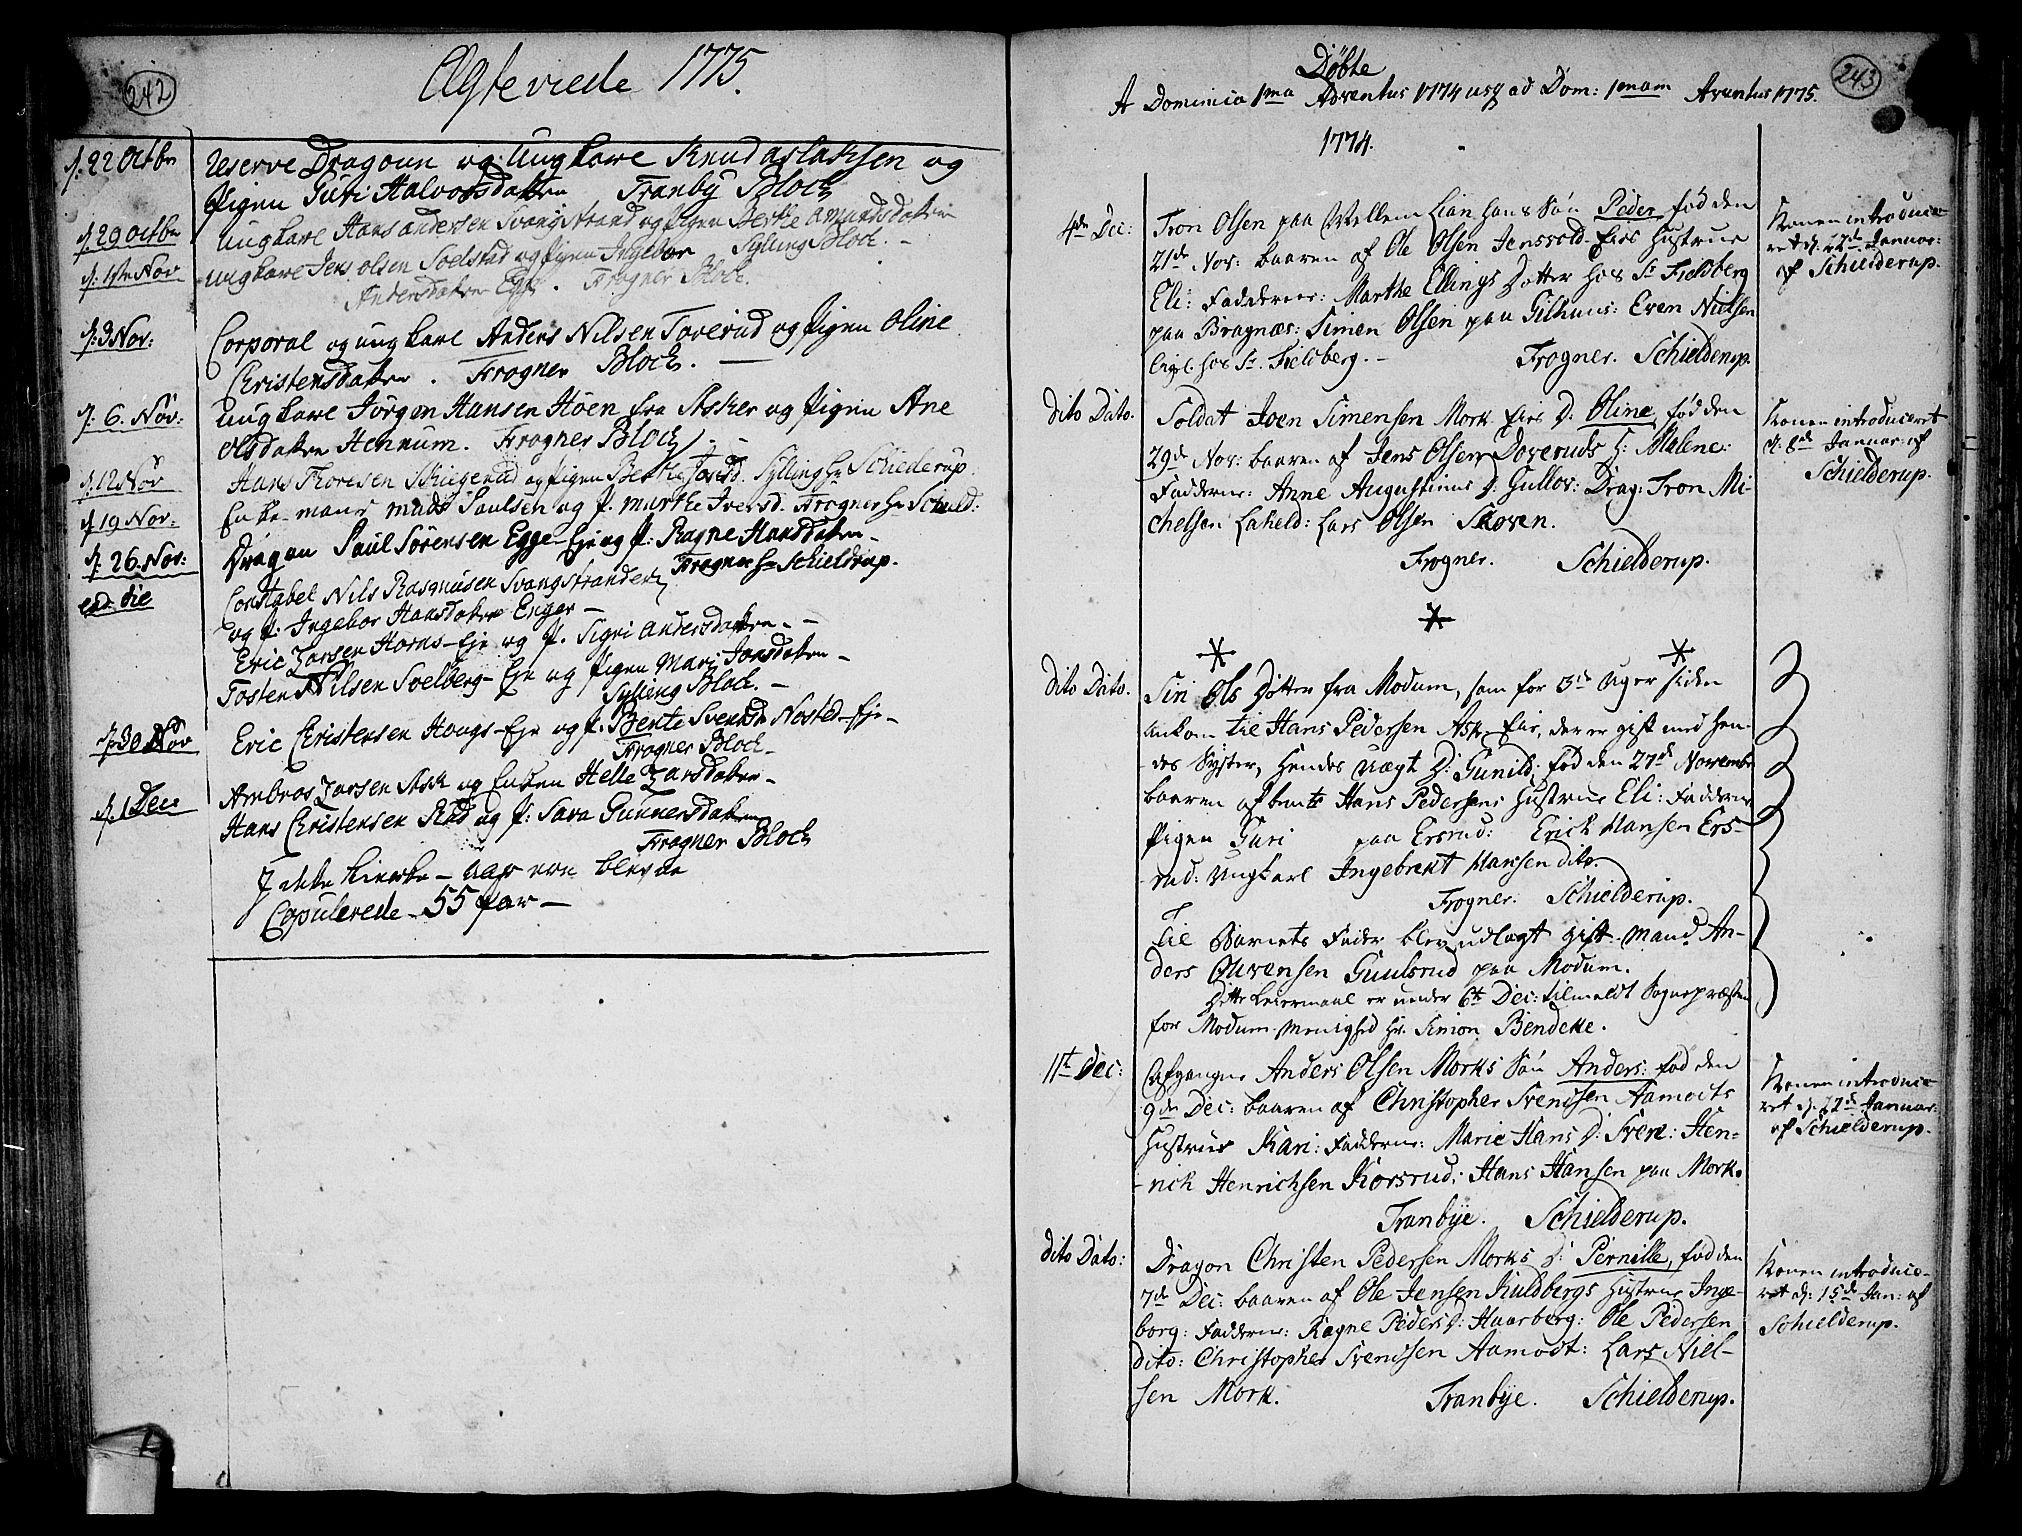 242
Ægteviede 1775.
d. 22 Octbr
Reserve Dragoun og Ungkarl Knud Aslaksen og
Pigen Guri Halvorsdatter Tranby Bloch
d. 29 Octbr
Ungkarl Hans Andersen Svangstrand og Pigen Berthe Amundsdatter
Sylling Bloch. -
d: Nov
Ungkarl Jens Olsen Solstad og Pigen Ingebor
Andersdatter Egge. Frogner Bloch.
d: 3 Nov:
Corporal og ungkarl Anders Nilsen Toverud og Pigen Oline
Christensdatter. Frogner Bloch.
d: 6. Nov:
Ungkarl Jörgen Hansen Höen fra Asker og Pigen Ane
Olsdatter Hennum. Frogner Bloch.
d. 12 Nov
Hans Thoresen og Pigen Berthe Sylling Hr Schielderup
d 19 Nov:
Enkemand Mads Paulsen og P. Marthe Iversd. Frogner Hr Schield:
d. 26. Nov:
Dragon Paul Sörensen Egge-Eje og P: Ragne Hansdatter -
Frogner Hr Schieldrup.
eod. die
Constabel Nils Rasmusen Svangstrander
og P: Ingebor Hansdatter Enger -
Eric Larsen Horns-Eje og P. Sigri Andersdatter -
Tosten Nilsen Soelberg-Eje og Pigen Mari Jonsdatter -
Sylling Bloch. -
d: 30 Nov
Eric Christensen Hougs-Eje og P. Bente Svendsd: Nosted-Eje -
Frogner Bloch -
d. 1 Dec:
Ambros Larsen Ask og Enken Helle Larsdatter -
Hans Christensen Rød og P: Sara Gunnersdatter
Frogner Bloch
I dette Kierke-Aar ere blevne
Copulerede 55 par -
243
Døbte
A Dominica 1ma Adventus 1774 usq ad Dom: 1mam Aventus 1775.
1774.
4de Dec:
Tron Olsen paa Vellem Lian hans Søn Peder fød den
21de Nov: baaren af Ole Olsen Jensvold-Eies Hustrue
Eli: Fadderne: Marthe Ellings Dotter hos Sr Fieldberg
paa Bragnæs: Simen Olsen paa Gilhuus: Even Nielsen
ligel. hos Sr. Fieldberg. - Frogner. Schielderup.
Konen introduce-
ret d: 22de Januar:
af Schielderup.
Dito Dato.
Soldat Joen Simensen Mork-Eies D: Oline, fød den
29de Nov: baaren af Jens Olsen Doveruds H: Malene:
Fadderne: Anne Augustinus D: Gullov: Drag: Tron Mi-
chelsen Laheld: Lars Olsen Skoven.
Frogner. Schielderup.
Konen introduceret
d: 8de Januar: af
Schielderup.
Dito Dato.
Siri Ols Dotter fra Modum, som for 3de Uger siden
ankom til Hans Pedersen Ask-Eie, der er gift med hen-
des Syster, hendes uægt D: Gunild, fød den 27de Novembr
baaren af bemte Hans Pedersens Hustrue Eli: Fadderne
Pigen Guri paa Ersrud: Erich Hansen Ers-
rud: Ungkarl Ingebrent Hansen dito.
Frogner: Schielderup.
Til Barnets Fader blev udlagt gift Mand An-
ders Guulsrud paa Modum.
Dette Leiermaal er under 6te Dec: tilmeldt Sognepræsten
for Modum Menighed Hr. Simon Bendeke.
11te Dec:
Afgangne Anders Olsen Morks Søn Anders: fød den
9de Dec: baaren af Christopher Svendsen Aamodts
Hustrue Kari: Fadderne: Marie Hans D: Svere: Hen-
rich Henrichsen Korsrud: Hans Hansen paa Mork.
Tranbye. Schielderup.
Konen introduce-
ret d: 22de Januar:
af Schielderup.
Dito Dato:
Dragon Christen Pedersen Morks D: Pernille, fød den
7de Dec: baaren af Ole Jensen Kuldbergs Hustrue Inge-
borg: Fadderne: Ragne Peders D: Haarberg: Ole Pedersen
dito: Christopher Svendsen Aamodt: Lars Niel-
sen Mork. Tranbye. Schielderup.
Konen introduce-
ret d: 15de Jan: af
Schielderup.